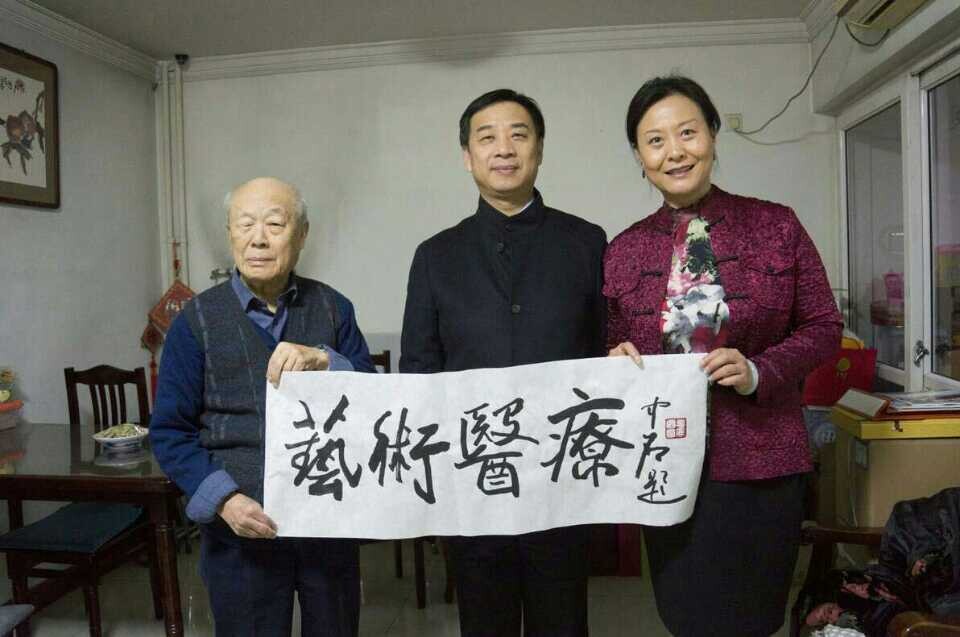 藝術醫療
中石題